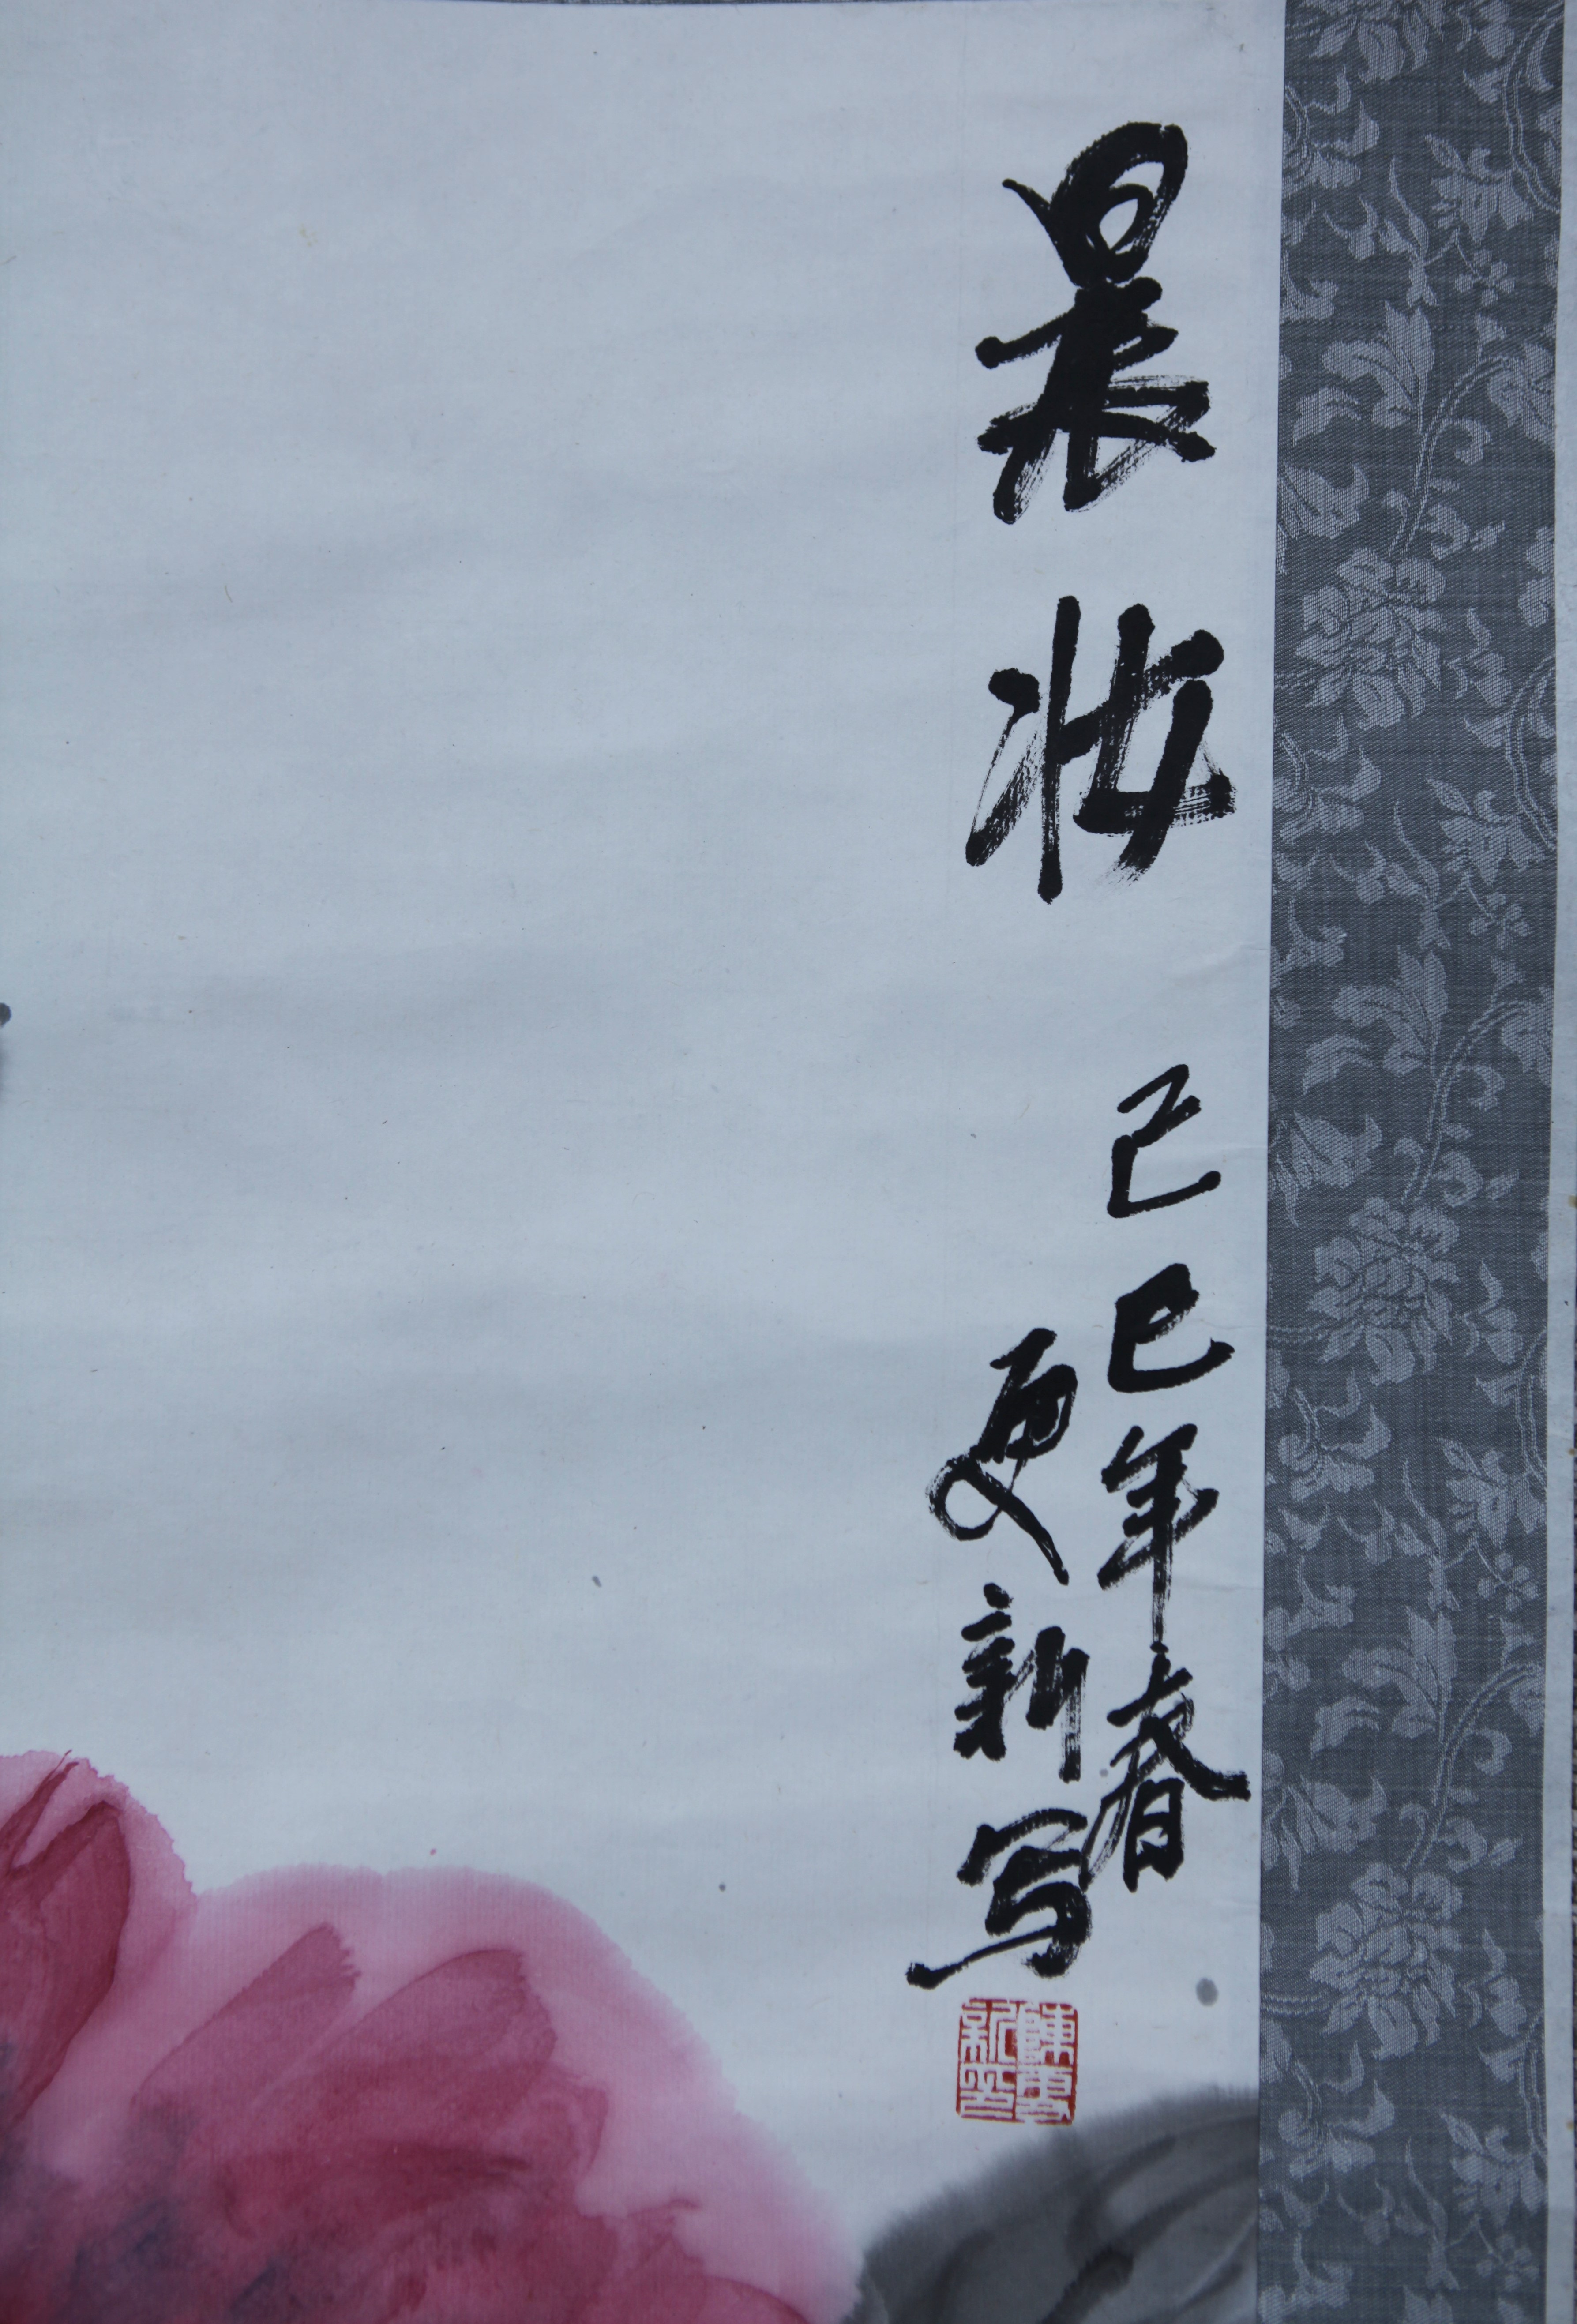 晨妆 己巳年春
更新写
陳更新印